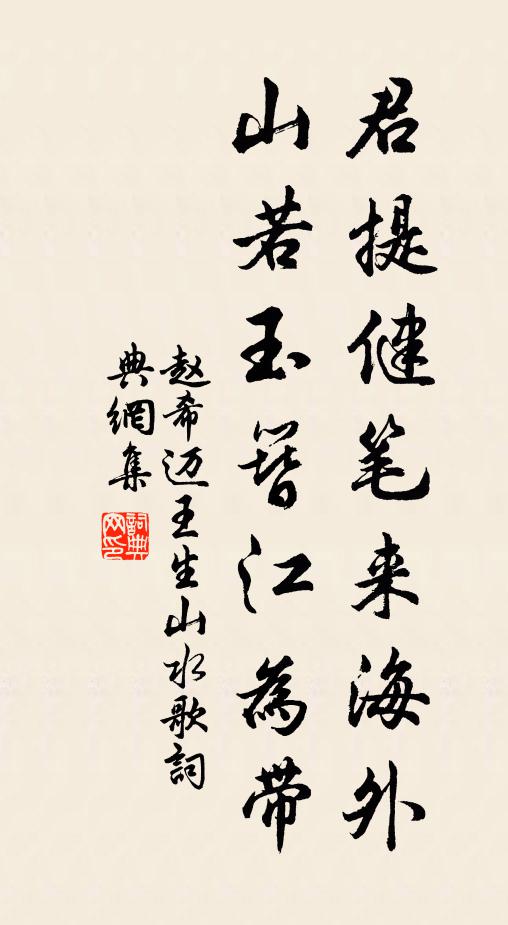 君提健笔来海外
山若玉簪江為带
赵希迈王生山水歌詞
典網集
詞典
网印